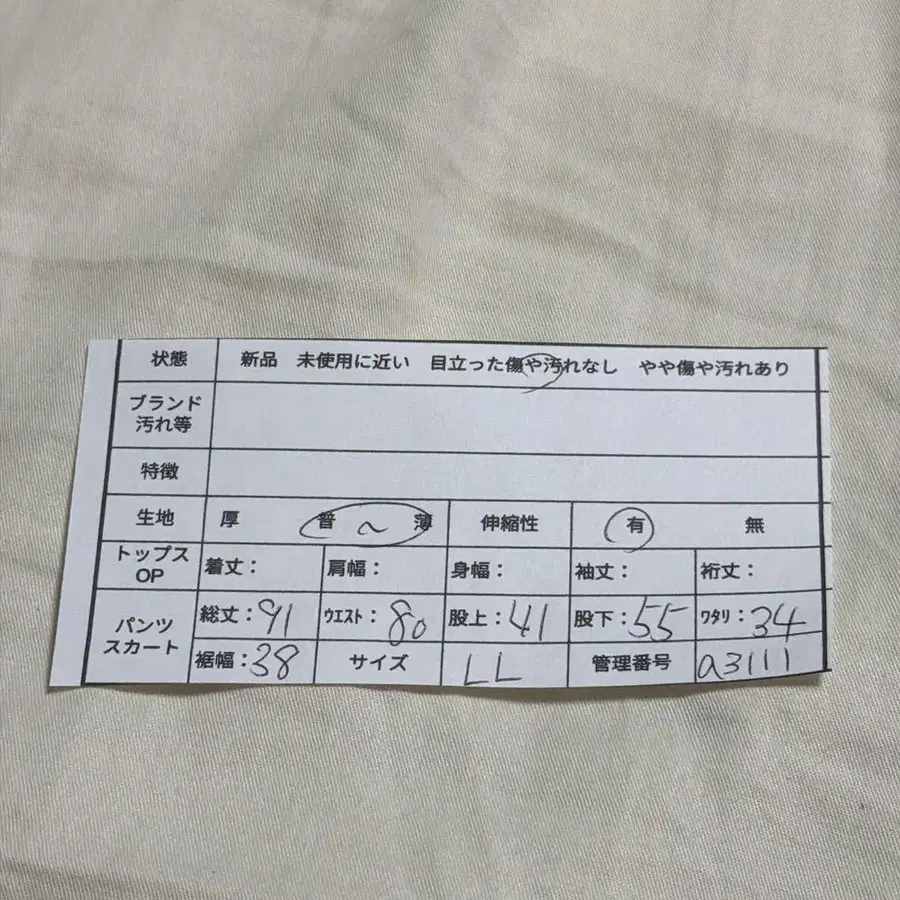 状態 新品 未使用に近い 目立った傷や汚れなし やや傷や汚れあり
ブランド
汚れ等
特徴
生地 厚 普 ~ 薄 伸縮性 有 無
トップス
OP
着丈: 肩幅: 身幅: 袖丈: 裄丈:
パンツ
スカート
総丈:91 ウエスト:80 股上:41 股下:55 ワタリ:34
裾幅:38 サイズ LL 管理番号 a3111